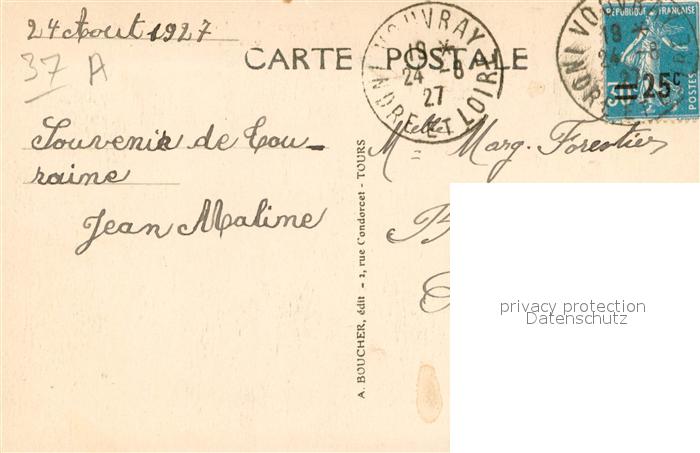 24 Aout 1927
37 A
CARTE POSTALE
VOUVRAY
18 *
24 - 8
27
INDRE ET LOIRE
REPUBLIQUE FRANÇAISE
25c
POSTES
Souvenir de Tou-
raine
Jean Maline
Melle Marg. Forestier
A. BOUCHER, édit - 2, rue Condorcet - TOURS
privacy protection
Datenschutz